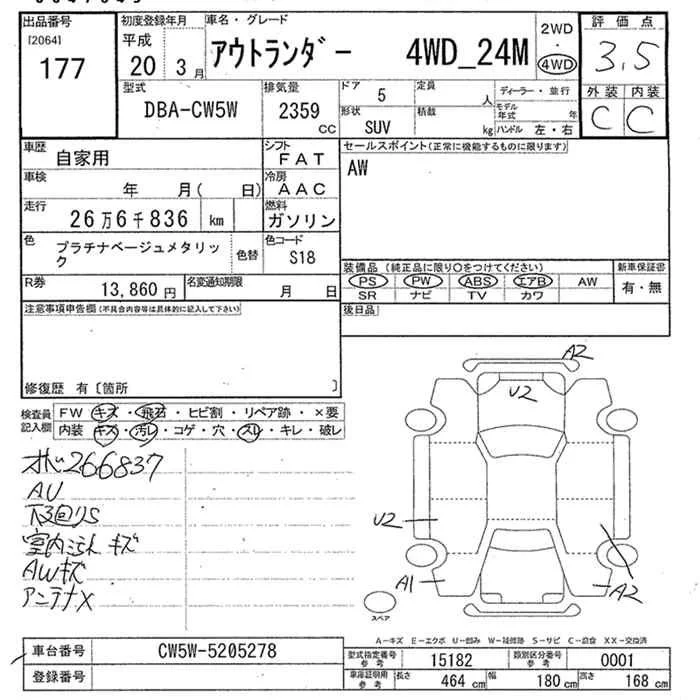 出品番号
[2064]
177
初度登録年月
平成
20 3月
車名・グレード
アウトランダー 4WD_24M
2WD
・
4WD
評価点
3.5
外装 内装
C C
型式
DBA-CW5W
排気量
2359
CC
ドア 5
定員 人
形状 SUV
積載 kg
ディーラー・並行
モデル年式 年
ハンドル 左・右
車歴 自家用
シフト FAT
車検 年 月( 日)
冷房 AAC
走行 26万6千836 km
燃料 ガソリン
色 プラチナベージュメタリック
色替
色コード S18
R券 13,860円
名変通知期限 月 日
セールスポイント(正常に機能するものに限ります)
AW
装備品(純正品に限り○をつけてください)
新車保証書
PS PW ABS エアB AW
SR ナビ TV カワ
有・無
後日品
注意事項申告欄(不具合内容等は具体的に記入して下さい)
修復歴 有〔箇所 〕
検査員記入欄
FW キズ・飛石・ヒビ割・リペア跡・×要
内装 キズ・汚レ・コゲ・穴・スレ・キレ・破レ
266837
AU
下回りS
室内 キズ
AWキズ
アンテナX
A2
U2
U2
A1
A2
スペア
A−キズ E−エクボ U−凹み W−補修跡 S−サビ C−腐食 XX−交換済
車台番号 CW5W-5205278
登録番号
型式指定番号 参考 15182
類別区分番号 参考 0001
車庫証明用 参考
長さ 464 cm
幅 180 cm
高さ 168 cm